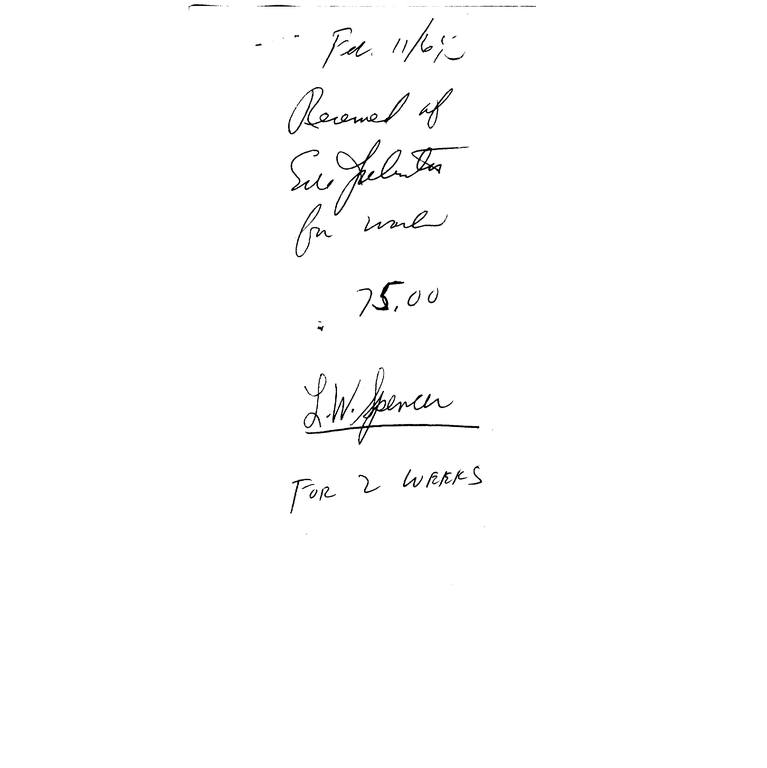 Feb. 11/6
Received of
Sue
for work
75.00
L.W. Spencer
FOR 2 WEEKS